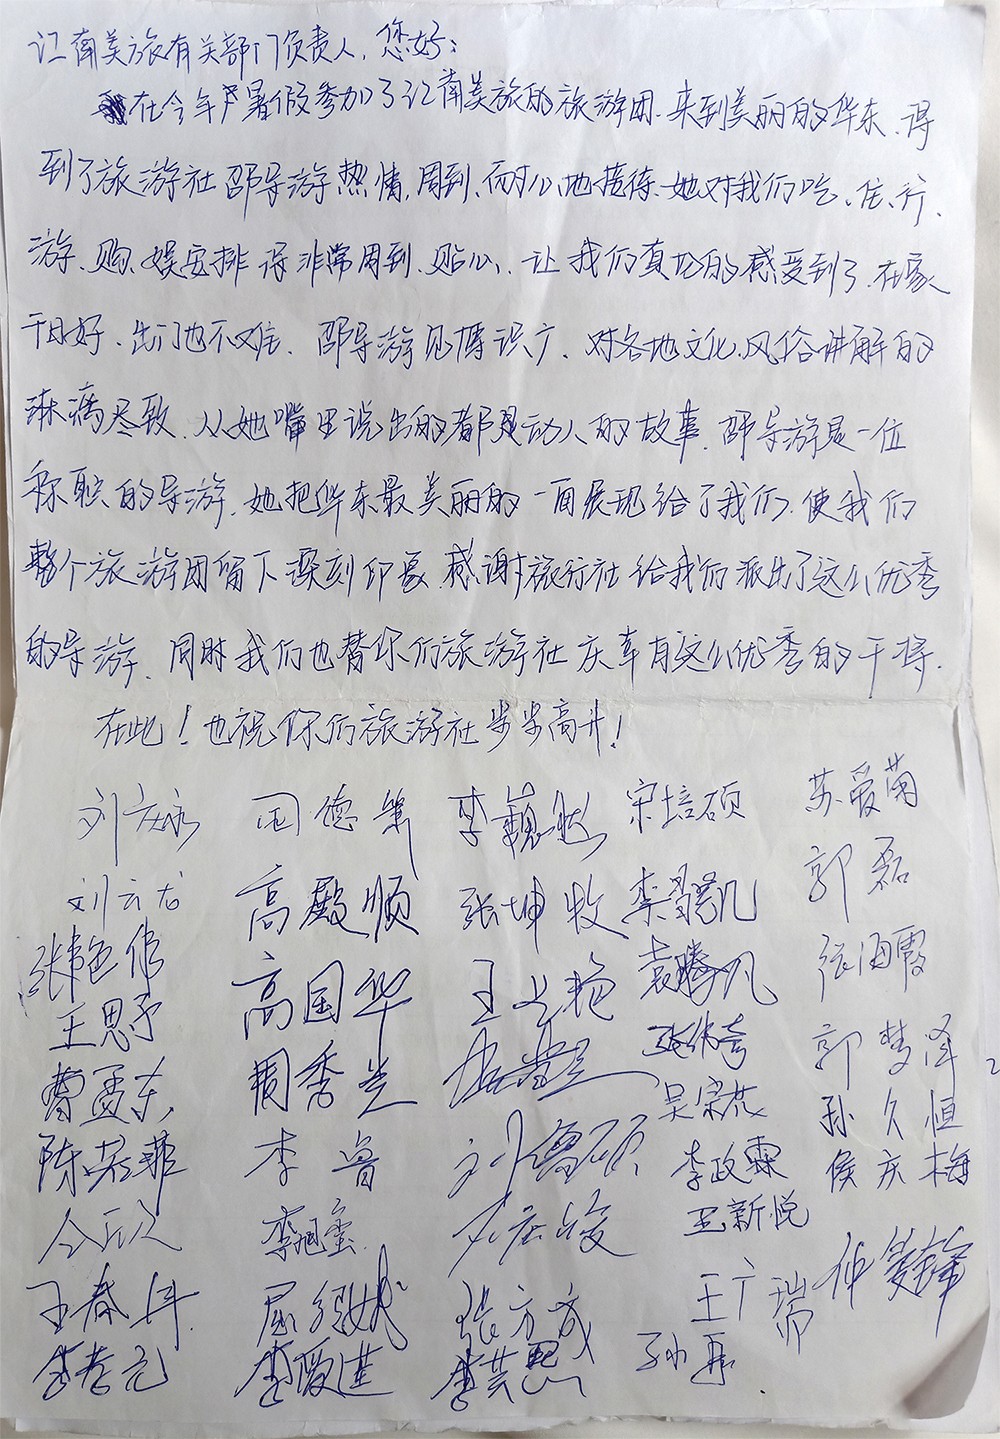 江南美旅有关部门负责人,您好:
在今年暑假参加了江南美旅的旅游团.来到美丽的华东、得
到了旅游社邵导游热情,周到、耐心地接待、她对我们吃、住、行、
游、购、娱安排得非常周到、贴心、让我们真切的感受到了.在家
千日好、出门也不难、邵导游见博识广、对各地文化、风俗讲解的
淋漓尽致、从她嘴里说出的都是动人的故事.邵导游是一位
称职的导游、她把华东最美丽的一面展现给了我们.使我们
整个旅游团留下深刻印象.感谢旅行社给我们派出了这么优秀
的导游、同时我们也替你们旅游社庆幸有这么优秀的干将.
在此!也祝你们旅游社步步高升!
刘庆永 李 宋培硕 苏爱菊
刘云龙 高殿顺 张坤牧 郭磊
张 高国华 王 袁腾凡 张海霞
王思予 周秀兰 郭梦泽
曹孟东 李鲁 刘鲁硕 吴宗 孙久恒
陈若菲 李旭 李政霖 侯庆梅
王新悦
王春 屈 张方成 王广瑞 仲
李爱莲 李 孙